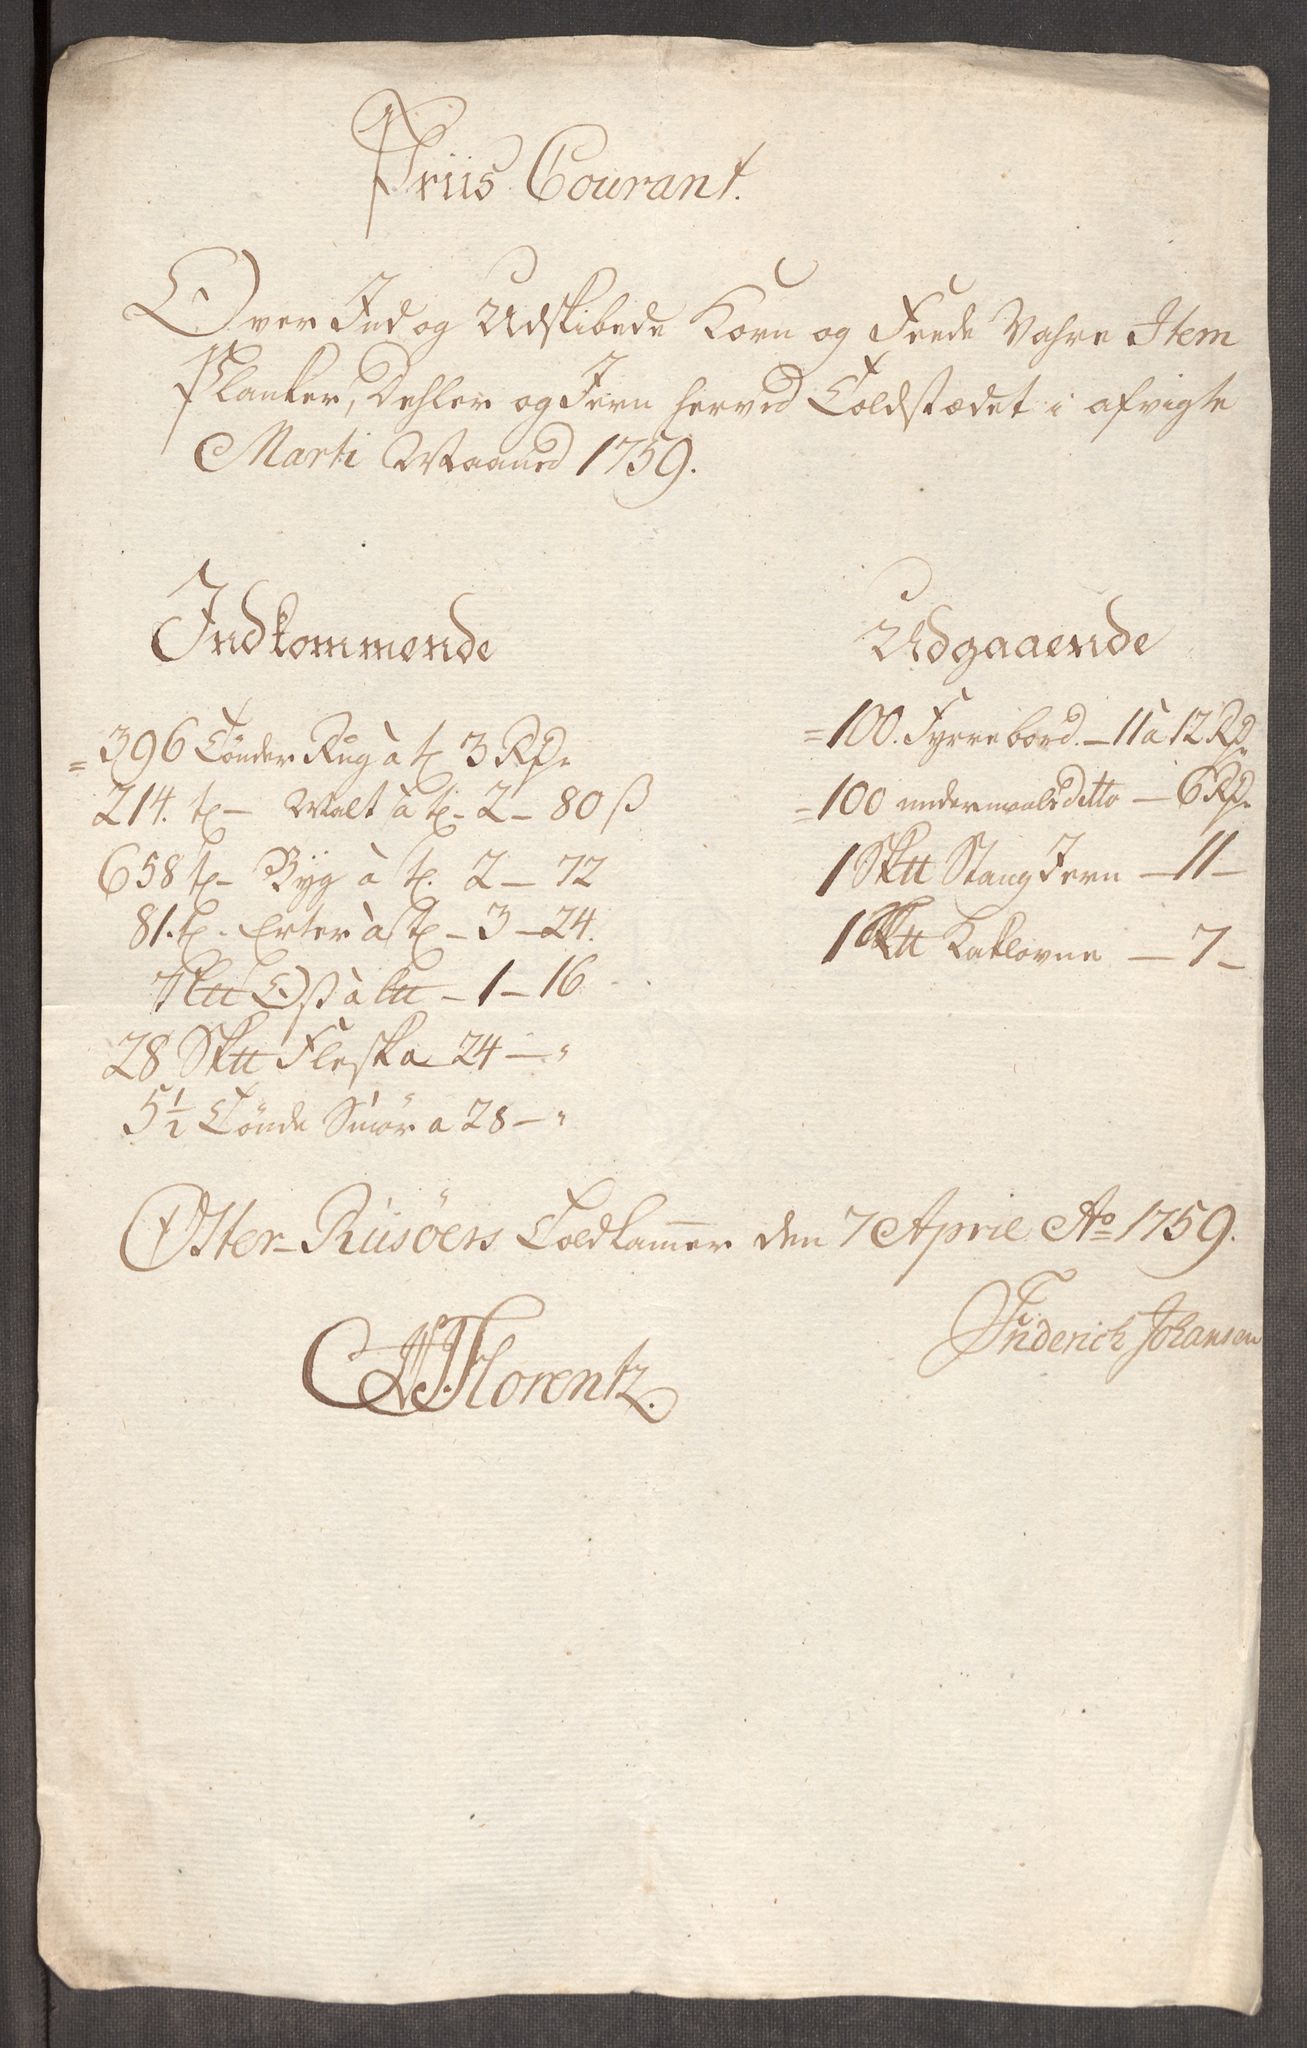 Priis Courant.
Over Ind og Udskibede Korn og Feede Vahre Item
Planker, Dehler og Jern herved Toldstædet i afvigte
Marti Maaned 1759.
Indkommende
396 Tønder Rug à t 3 Rdr
214. t – Malt à t – 2 – 80 ß
658 t – Byg à t. 2 – 72
81. t – Erter à t – 3 – 24.
Ost à – 1 – 16
28 Sk℔ Flesk a 24 – "
5½ Tønde Smør a 28 – "
Udgaaende
100. Fyrrebord. – 11 à 12 Rdr
100 undermaals ditto – 6 Rdr
1 Sk℔ Stang Jern – 11 –
1 Sk℔ Kaklovne – 7 –
Øster-Riisøers Toldkammer den 7 April Ao 1759.
Friderich Johansen
Florentz.